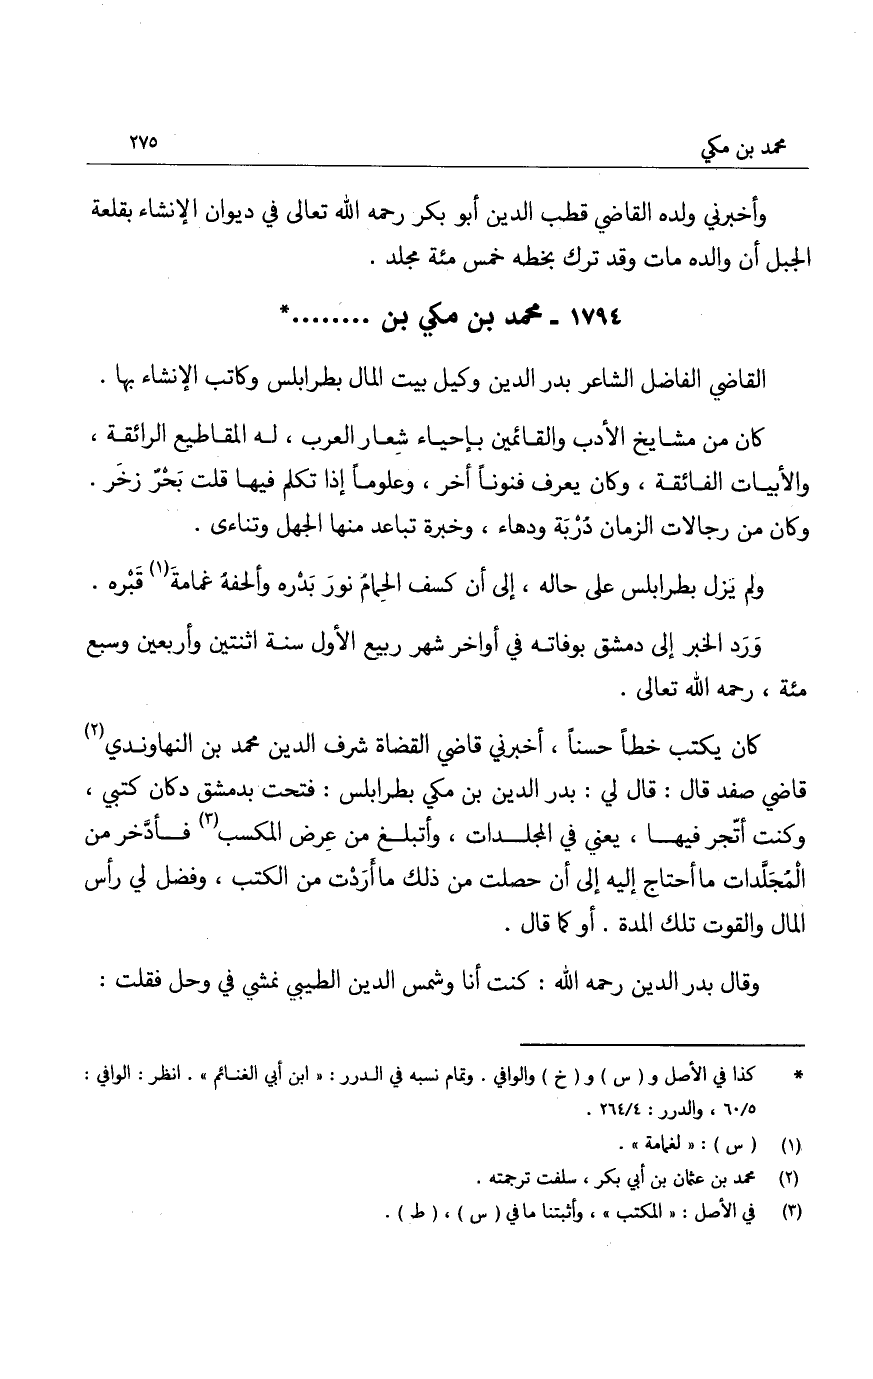 محمد بن مكي ٢٧٥
وأخبرني ولده القاضي قطب الدين أبو بكر رحمه الله تعالى في ديوان الإنشاء بقلعة
الجبل أن والده مات وقد ترك بخطه خمس مئة مجلد .
١٧٩٤ ـ محمد بن مكي بن ........*
القاضي الفاضل الشاعر بدر الدين وكيل بيت المال بطرابلس وكاتب الإنشاء بها .
كان من مشايخ الأدب والقائمين بإحياء شِعار العرب ، له المقاطيع الرائقة ،
والأبيات الفائقة ، وكان يعرف فنوناً أخر ، وعلوماً إذا تكلم فيها قلت بَحْرٌ زخَر .
وكان من رجالات الزمان دُرْبَة ودهاء ، وخبرة تباعد منها الجهل وتناءى .
ولم يَزل بطرابلس على حاله ، إلى أن كسف الحِمامُ نورَ بَدْره وألحفهُ غمامةَ(١) قَبْره .
وَرَد الخبر إلى دمشق بوفاته في أواخر شهر ربيع الأول سنة اثنتين وأربعين وسبع
مئة ، رحمه الله تعالى .
كان يكتب خطاً حسناً ، أخبرني قاضي القضاة شرف الدين محمد بن النهاوندي(٢)
قاضي صفد قال : قال لي : بدر الدين بن مكي بطرابلس : فتحت بدمشق دكان كتبي ،
وكنت أتّجر فيها ، يعني في المجلدات ، وأتبلغ من عرض المكسب(٣) فأدَّخر من
الْمُجَلَّدات ما أحتاج إليه إلى أن حصلت من ذلك ما أَرَدْت من الكتب ، وفضل لي رأس
المال والقوت تلك المدة . أو كما قال .
وقال بدر الدين رحمه الله : كنت أنا وشمس الدين الطيبي نمشي في وحل فقلت :
* كذا في الأصل و ( س ) و ( خ ) والوافي . وتمام نسبه في الدرر : « ابن أبي الغنائم » . انظر : الوافي :
٦٠/٥ ، والدرر : ٢٦٤/٤ .
(١) ( س ) : « لغمامة » .
(٢) محمد بن عثمان بن أبي بكر ، سلفت ترجمته .
(٣) في الأصل : « المكتب » ، وأثبتنا ما في ( س ) ، ( ط ) .